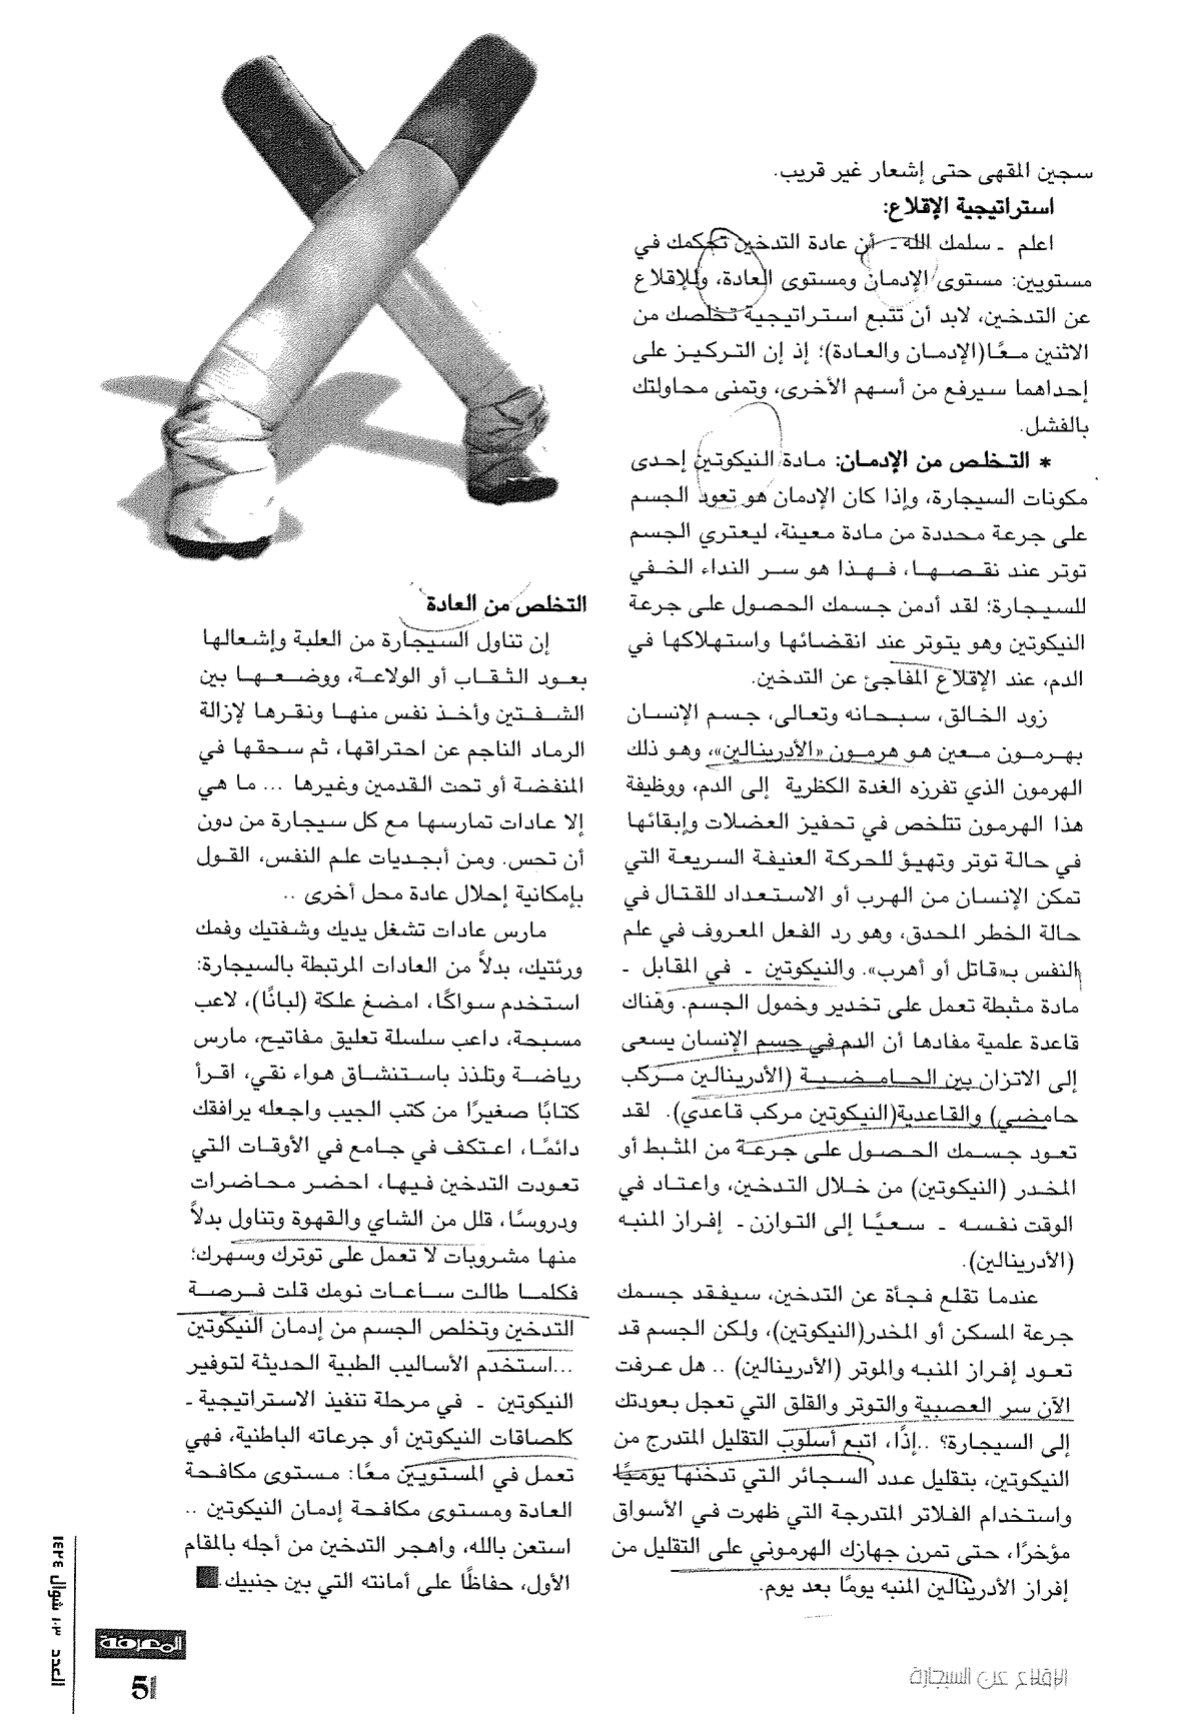 سجين المقهى حتى إشعار غير قريب.
استراتيجية الإقلاع:
اعلم ـ سلمك الله ـ أن عادة التدخين تحكمك في
مستويين: مستوى الإدمان ومستوى العادة، وللإقلاع
عن التدخين، لابد أن تتبع استراتيجية تخلصك من
الاثنين معًا(الإدمان والعادة)؛ إذ إن التركيز على
إحداهما سيرفع من أسهم الأخرى، وتمنى محاولتك
بالفشل.
* التخلص من الإدمان: مادة النيكوتين إحدى
مكونات السيجارة، وإذا كان الإدمان هو تعود الجسم
على جرعة محددة من مادة معينة، ليعتري الجسم
توتر عند نقصها، فهذا هو سر النداء الخفي
للسيجارة؛ لقد أدمن جسمك الحصول على جرعة
النيكوتين وهو يتوتر عند انقضائها واستهلاكها في
الدم، عند الإقلاع المفاجئ عن التدخين.
زود الخالق، سبحانه وتعالى، جسم الإنسان
بهرمون معين هو هرمون «الأدرينالين»، وهو ذلك
الهرمون الذي تفرزه الغدة الكظرية إلى الدم، ووظيفة
هذا الهرمون تتلخص في تحفيز العضلات وإبقائها
في حالة توتر وتهيؤ للحركة العنيفة السريعة التي
تمكن الإنسان من الهرب أو الاستعداد للقتال في
حالة الخطر المحدق، وهو رد الفعل المعروف في علم
النفس بـ«قاتل أو أهرب». والنيكوتين ـ في المقابل ـ
مادة مثبطة تعمل على تخدير وخمول الجسم. وهناك
قاعدة علمية مفادها أن الدم في جسم الإنسان يسعى
إلى الاتزان بين الحامضية (الأدرينالين مركب
حامضي) والقاعدية(النيكوتين مركب قاعدي). لقد
تعود جسمك الحصول على جرعة من المثبط أو
المخدر (النيكوتين) من خلال التدخين، واعتاد في
الوقت نفسه ـ سعيًا إلى التوازن ـ إفراز المنبه
(الأدرينالين).
عندما تقلع فجأة عن التدخين، سيفقد جسمك
جرعة المسكن أو المخدر(النيكوتين)، ولكن الجسم قد
تعود إفراز المنبه والموتر (الأدرينالين) .. هل عرفت
الآن سر العصبية والتوتر والقلق التي تعجل بعودتك
إلى السيجارة؟ ..إذًا، اتبع أسلوب التقليل المتدرج من
النيكوتين، بتقليل عدد السجائر التي تدخنها يوميًا
واستخدام الفلاتر المتدرجة التي ظهرت في الأسواق
مؤخرًا، حتى تمرن جهازك الهرموني على التقليل من
إفراز الأدرينالين المنبه يومًا بعد يوم.
التخلص من العادة
إن تناول السيجارة من العلبة وإشعالها
بعود الثقاب أو الولاعة، ووضعها بين
الشفتين وأخذ نفس منها ونقرها لإزالة
الرماد الناجم عن احتراقها، ثم سحقها في
المنفضة أو تحت القدمين وغيرها ... ما هي
إلا عادات تمارسها مع كل سيجارة من دون
أن تحس. ومن أبجديات علم النفس، القول
بإمكانية إحلال عادة محل أخرى ..
مارس عادات تشغل يديك وشفتيك وفمك
ورئتيك، بدلاً من العادات المرتبطة بالسيجارة:
استخدم سواكًا، امضغ علكة (لبانًا)، لاعب
مسبحة، داعب سلسلة تعليق مفاتيح، مارس
رياضة وتلذذ باستنشاق هواء نقي، اقرأ
كتابًا صغيرًا من كتب الجيب واجعله يرافقك
دائمًا، اعتكف في جامع في الأوقات التي
تعودت التدخين فيها، احضر محاضرات
ودروسًا، قلل من الشاي والقهوة وتناول بدلاً
منها مشروبات لا تعمل على توترك وسهرك؛
فكلما طالت ساعات نومك قلت فرصة
التدخين وتخلص الجسم من إدمان النيكوتين
...استخدم الأساليب الطبية الحديثة لتوفير
النيكوتين ـ في مرحلة تنفيذ الاستراتيجية ـ
كلصاقات النيكوتين أو جرعاته الباطنية، فهي
تعمل في المستويين معًا: مستوى مكافحة
العادة ومستوى مكافحة إدمان النيكوتين ..
استعن بالله، واهجر التدخين من أجله بالمقام
الأول، حفاظًا على أمانته التي بين جنبيك.
العدد ١٠٣ شوال ١٤٢٤
المعرفة
51
الإقلاع عن السيجارة